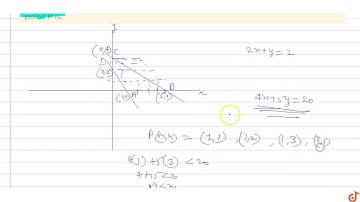 y
(0,4) C
D
B
A
x
2x+y=2
4x+5y=20
P(x,y) = (1,1) , (1,2) , (1,3) , (2,1)
4(1)+5(3) <20
4+15<20
19<20